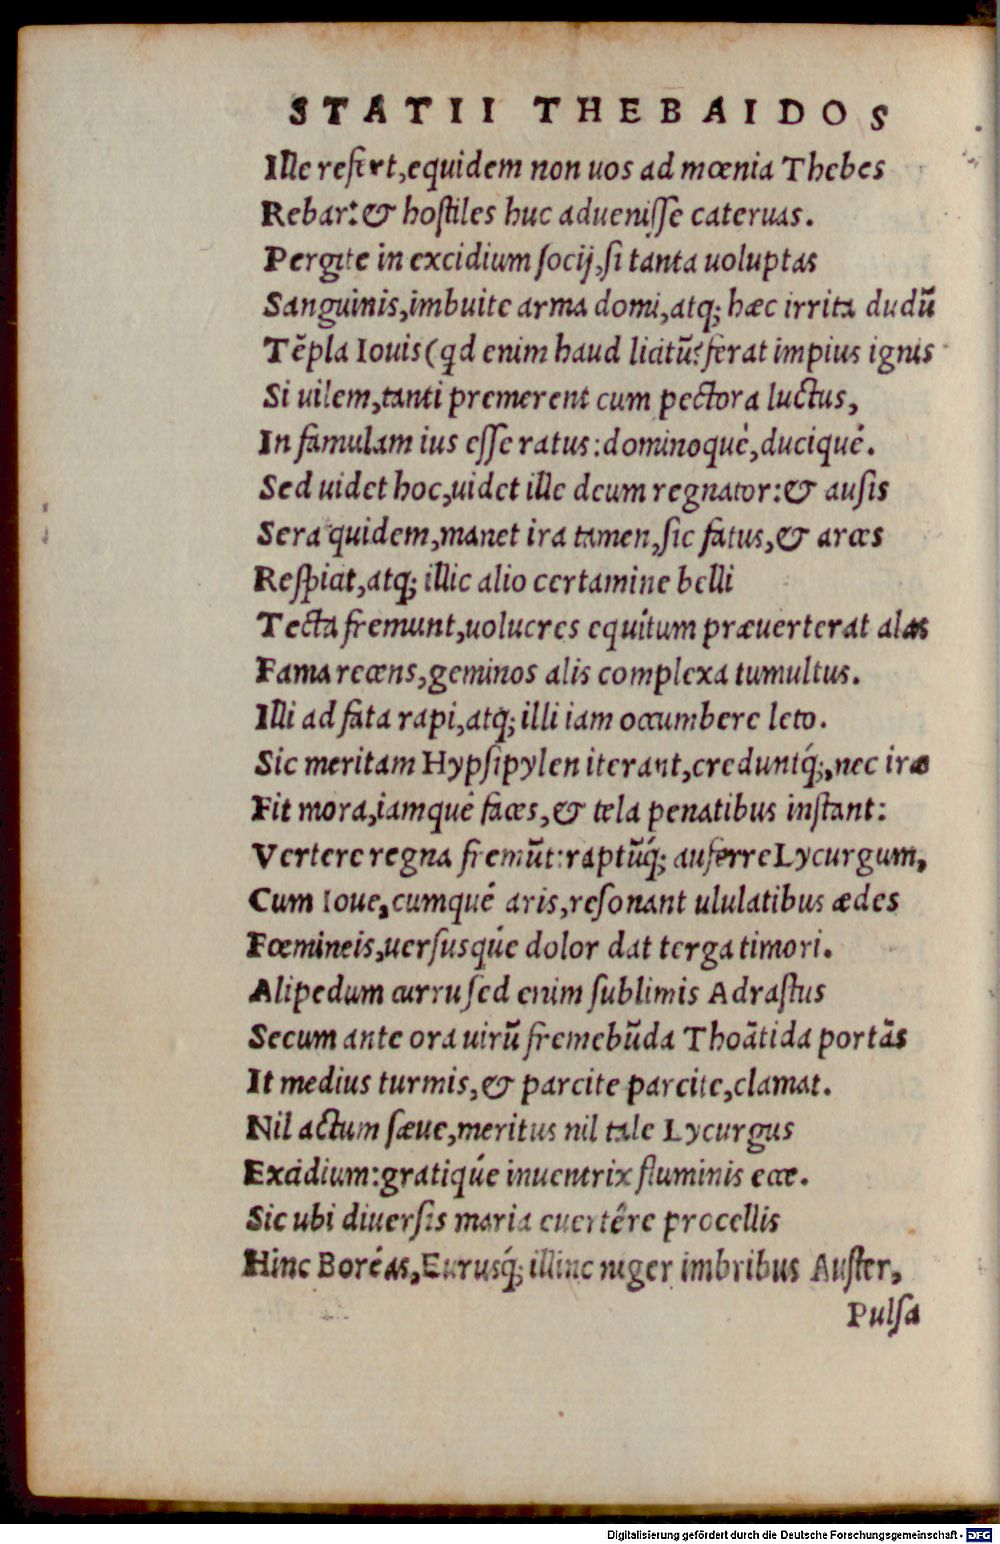 STATII THEBAIDOS
Ille refert,equidem non uos ad mœnia Thebes
Rebar:& hostiles huc aduenisse cateruas.
Pergite in excidium socij,si tanta uoluptas
Sanguinis,imbuite arma domi,atq; hæc irrita dudũ
Tẽpla Iouis(qd enim haud licitũ?ferat impius ignis
Si uilem,tanti premerent cum pectora luctus,
In famulam ius esse ratus:dominoqué,duciqué.
Sed uidet hoc,uidet ille deum regnator:& ausis
Sera quidem,manet ira tamen,sic fatus,& arces
Respicit,atq; illic alio certamine belli
Tecta fremunt,uolucres equitum præuerterat alas
Fama recens,geminos alis complexa tumultus.
Illi ad fata rapi,atq; illi iam occumbere leto.
Sic meritam Hypsipylen iterant,creduntq́;,nec iræ
Fit mora,iamqué faces,& tela penatibus instant:
Vertere regna fremũt:raptũq́; auferre Lycurgum,
Cum Ioue,cumqué aris,resonant ululatibus ædes
Fœmineis,uersusqúe dolor dat terga timori.
Alipedum curru sed enim sublimis Adrastus
Secum ante ora uirũ fremebũda Thoãtida portãs
It medius turmis,& parcite parcite,clamat.
Nil actum sæue,meritus nil tale Lycurgus
Excidium:gratiqúe inuentrix fluminis ecce.
Sic ubi diuersis maria euertêre procellis
Hinc Boréas,Eurusq́; illinc niger imbribus Auster,
Pulsa
Digitalisierung gefördert durch die Deutsche Forschungsgemeinschaft - DFG